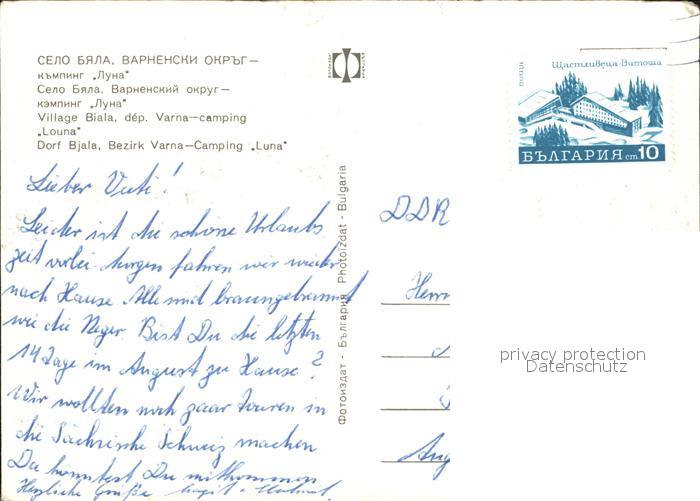 СЕЛО БЯЛА, ВАРНЕНСКИ ОКРЪГ—
къмпинг „Луна"
Село Бяла, Варненский округ—
кэмпинг „Луна"
Village Biala, dép. Varna—camping
„Louna"
Dorf Bjala, Bezirk Varna—Camping „Luna"
Lieber Vati!
Leider ist die schöne Urlaubs
zeit vorbei. Morgen fahren wir wieder
nach Hause. Alle sind braungebrannt
wie die Neger. Bist Du die letzten
14 Tage im August zu Hause?
Wir wollten noch paar Touren in
die Sächsische Schweiz machen
Du könntest Du mitkommen
Herzliche Grüße
Фотоиздат - България Photoizdat - Bulgaria
поща
Щастливеца-Витоша
БЪЛГАРИЯ ст 10
DDR
Herrn
privacy protection
Datenschutz